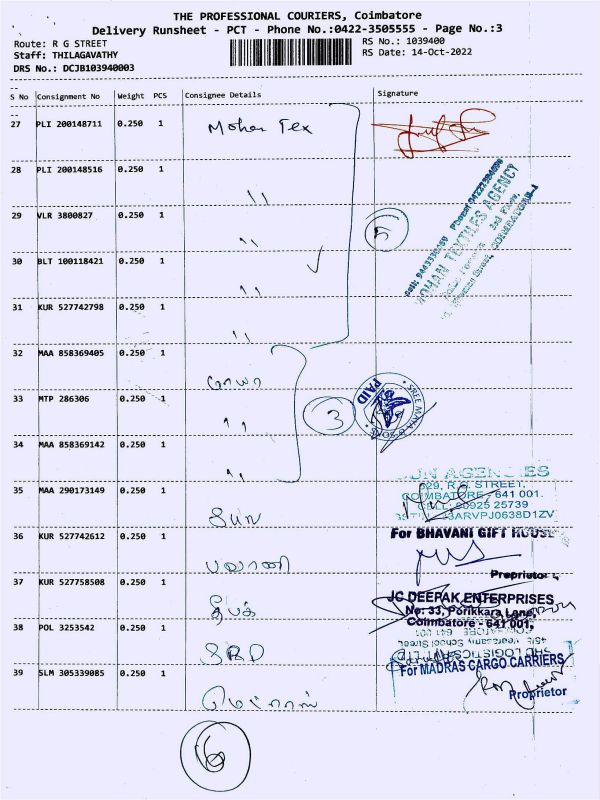 THE PROFESSIONAL COURIERS, Coimbatore
Delivery Runsheet - PCT - Phone No.:0422-3505555 - Page No.:3
Route: R G STREET
RS No.: 1039400
Staff: THILAGAVATHY
RS Date: 14-Oct-2022
DRS No.: DCJB103940003
S No Consignment No Weight PCS Consignee Details Signature
27 PLI 200148711 0.250 1 Mohan Tex
28 PLI 200148516 0.250 1 "
29 VLR 3800827 0.250 1 "
30 BLT 100118421 0.250 1 "
31 KUR 527742798 0.250 1 "
5
MOHAN TEXTILES AGENCY
32 MAA 858369405 0.250 1
33 MTP 286306 0.250 1 "
34 MAA 858369142 0.250 1 "
3
PAID
35 MAA 290173149 0.250 1
629, R.G. STREET,
COIMBATORE - 641 001.
CELL: 90925 25739
36 KUR 527742612 0.250 1 பவானி
For BHAVANI GIFT HOUSE
Proprietor
37 KUR 527758508 0.250 1 தீபக்
JC DEEPAK ENTERPRISES
No: 33, Porikkara Lane,
Coimbatore - 641 001,
38 POL 3253542 0.250 1
39 SLM 305339085 0.250 1 மெட்ராஸ்
For MADRAS CARGO CARRIERS
Proprietor
6